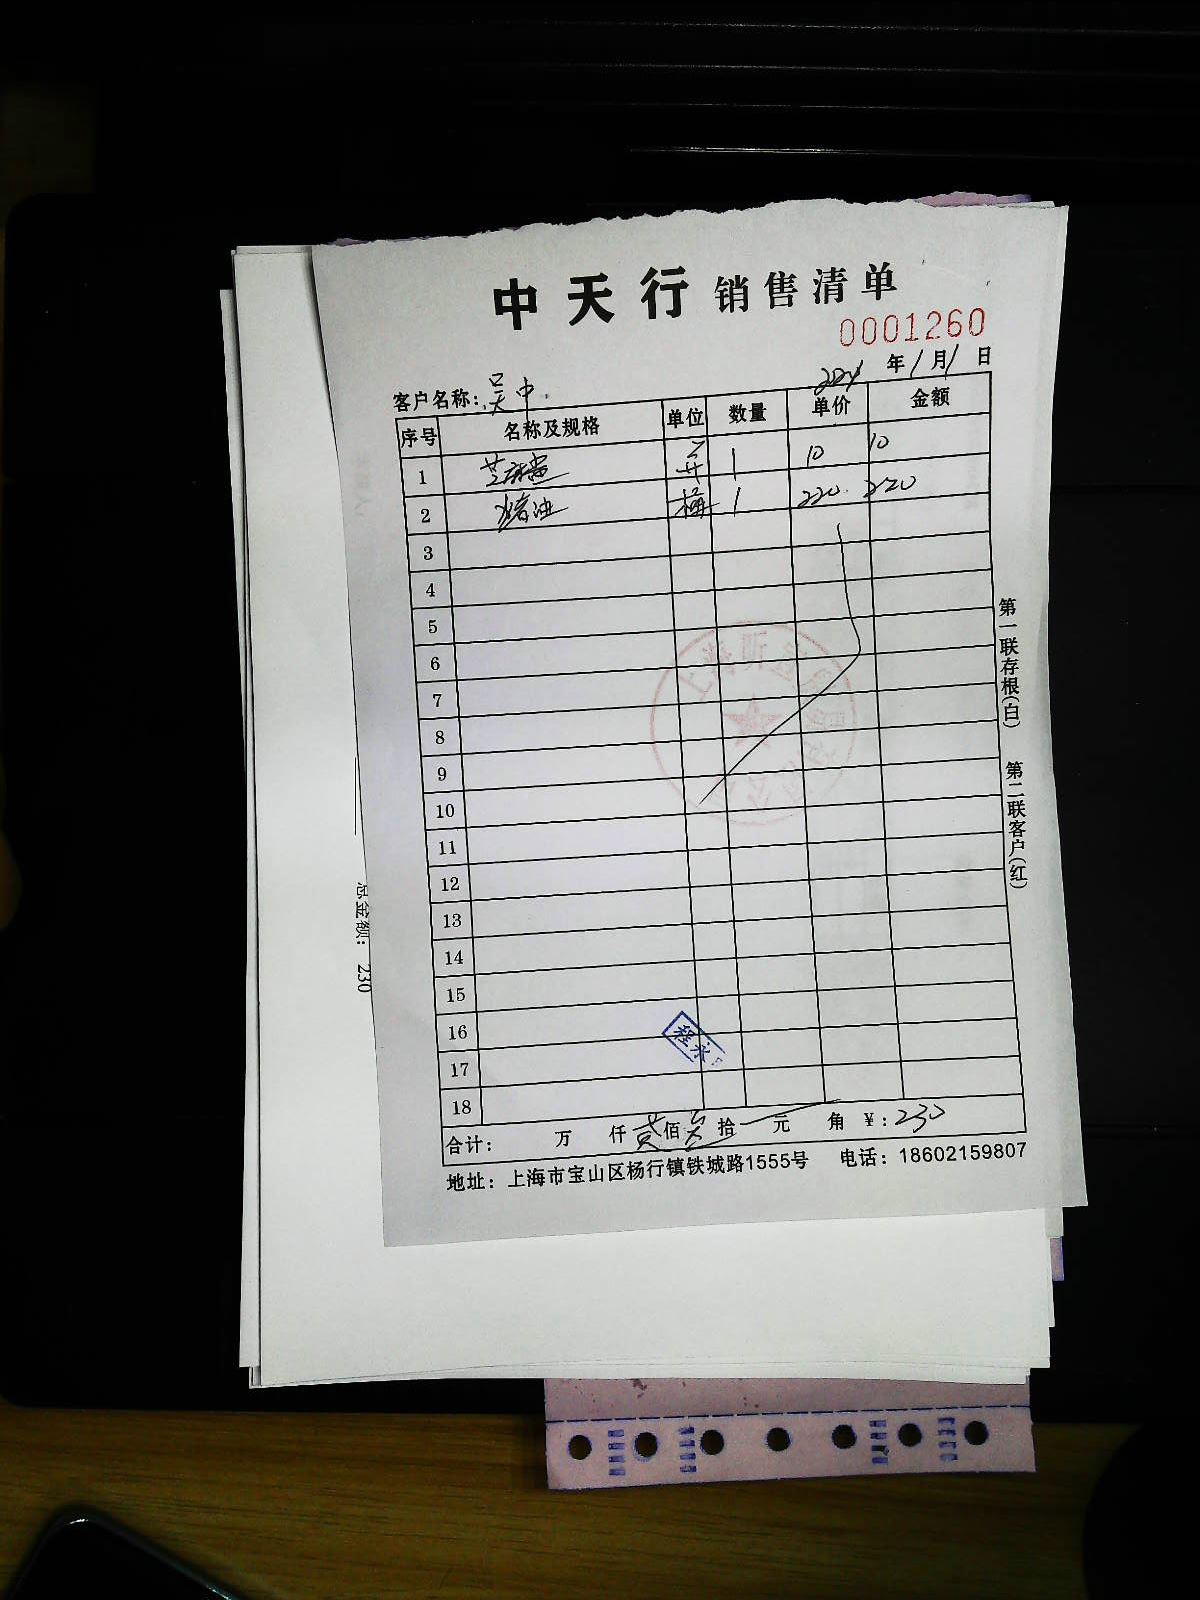 中天行 销售清单
0001260
2024 年 1 月 1 日
客户名称: 吴中
序号 名称及规格 单位 数量 单价 金额
1 芝麻酱 1 10 10
2 猪油 桶 1 220 220
3
4
5
6
7
8
9
10
11
12
13
14
15
16
17
18
合计: 万 仟 贰佰 叁拾 元 角 ¥: 230
地址: 上海市宝山区杨行镇铁城路1555号 电话: 18602159807
第一联存根(白) 第二联客户(红)
程永
总金额: 230